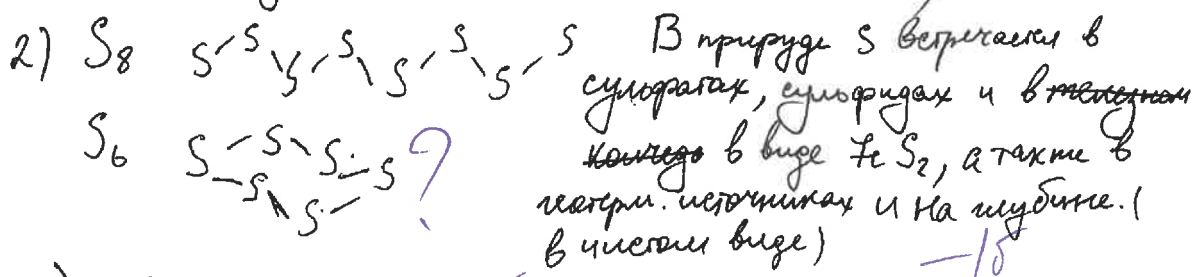 2) S8 S S S S S S S S В прируде S встречается в
сульфатах, сульфидах и в железном
S6 S S S S S S ? колчедо в виде FeS2, а также в
геотерм. источниках и на глубине. (
в чистом виде)
-1б